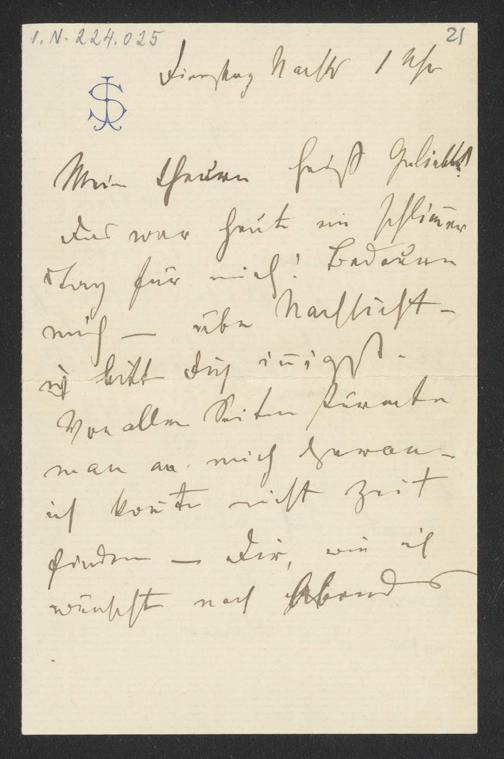 I.N. 224.025
21
Dienstag Nachts 1 Uhr
JS
Mein theurer heiß Geliebter!
Das war heute ein schlimer
Tag für mich! Bedaure
mich — übe Nachsicht —
ich bitt Dich inigst.
Von allen Seiten stürmte
man an mich heran —
ich konte nicht Zeit
finden — Dir, wie ich
wünscht noch Abends